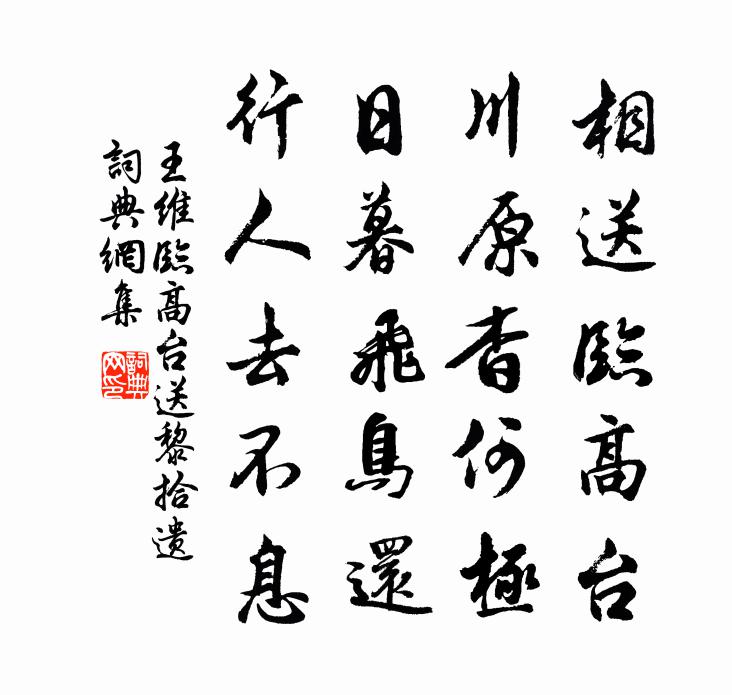 相送臨高台
川原杳何極
日暮飛鳥還
行人去不息
王維臨高台送黎拾遺
詞典網集
詞典
网印